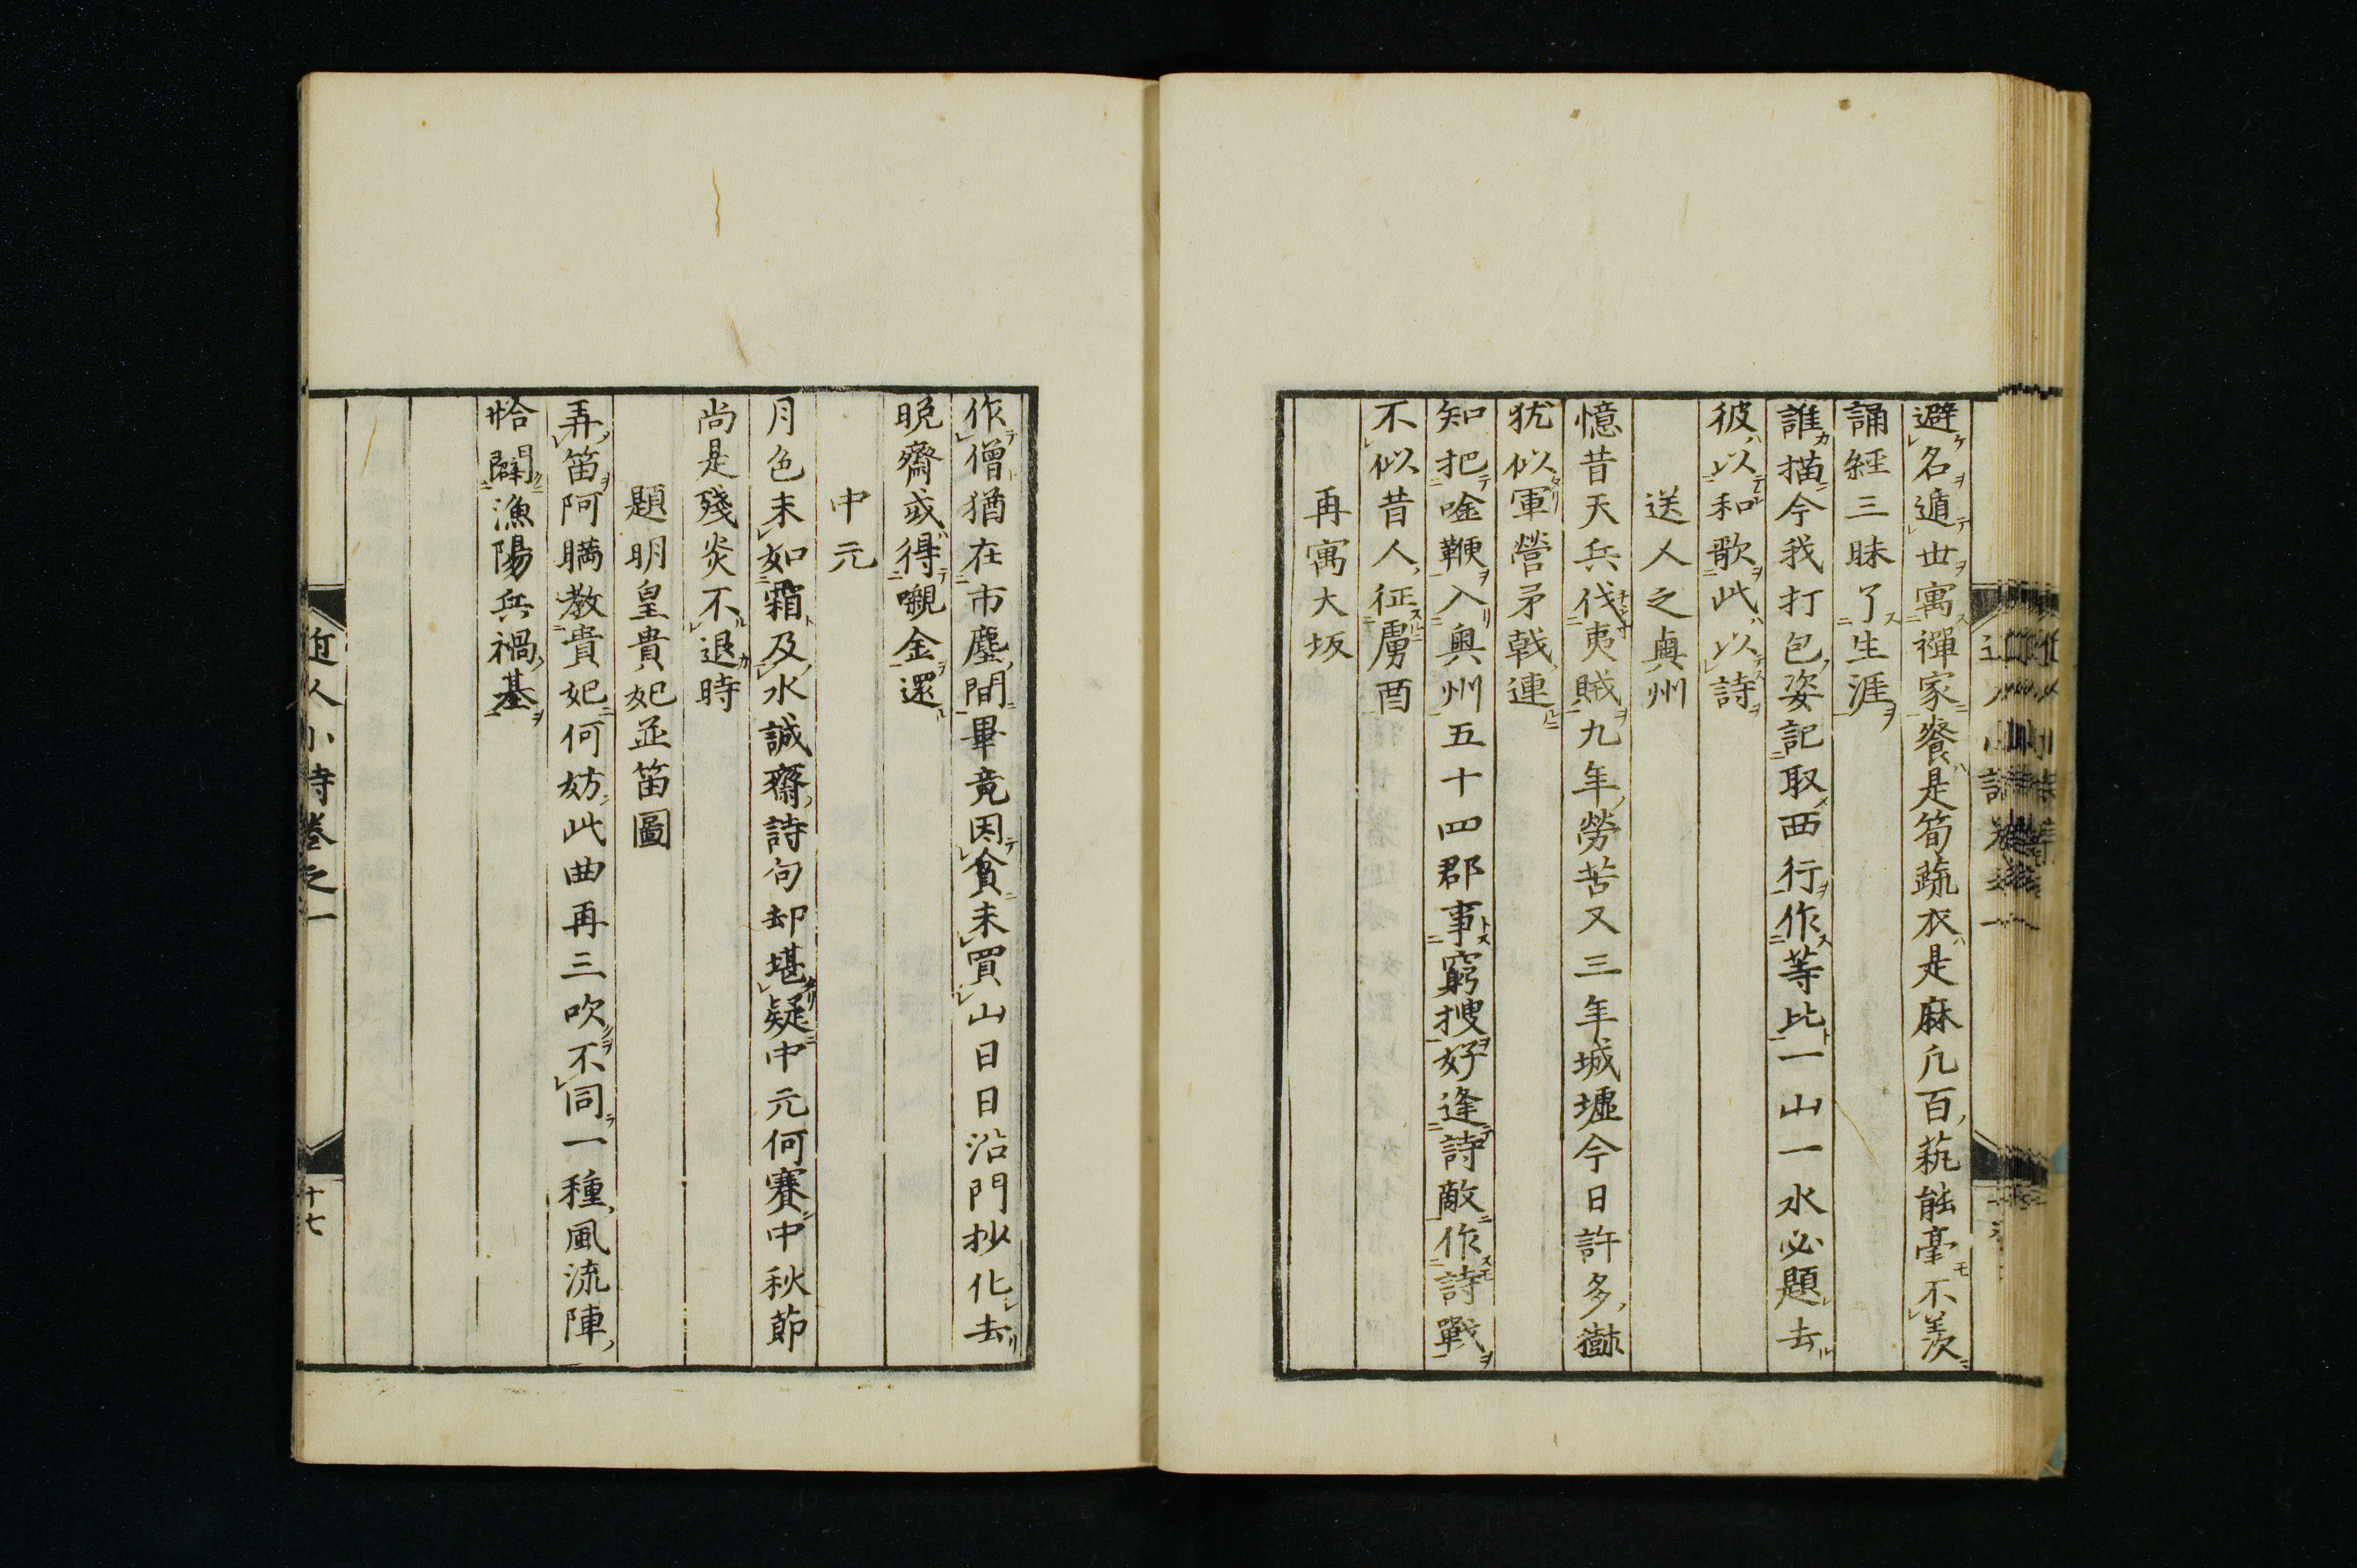 避名遁世寓禪家餐是筍蔬衣是麻凢百執能毫不羨
誦經三昧了生涯
誰描今我打包姿記取西行作等比一山一水必題去
彼以和歌此以詩
送人之奧州
憶昔天兵伐夷賊九年勞苦又三年城墟今日許多嶽
犹似軍營矛戟連
知把唫鞭入奧州五十四郡事窮搜好逢詩敵作詩戰
不似昔人征虜酋
再寓大坂
作僧猶在市塵間畢竟因貧未買山日日沿門抄化去
晚齋或得嚫金還
中元
月色未如霜及水誠齋詩句却堪疑中元何賽中秋節
尚是殘炎不退時
題明皇貴妃並笛圖
弄笛阿瞞教貴妃何妨此曲再三吹不同一種風流陣
恰闢漁陽兵禍基
近人小詩卷之一
十七